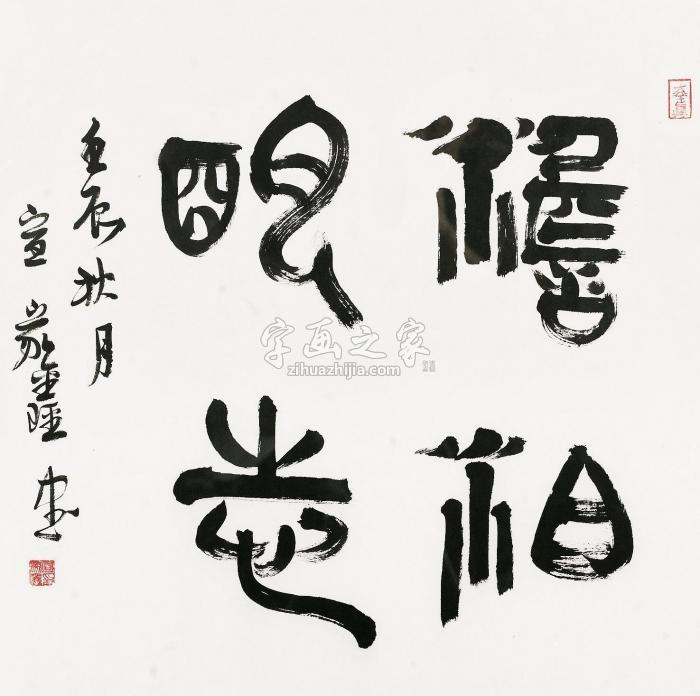 澹泊
明志
壬辰秋月
宣書
字画之家
zihuazhijia.com